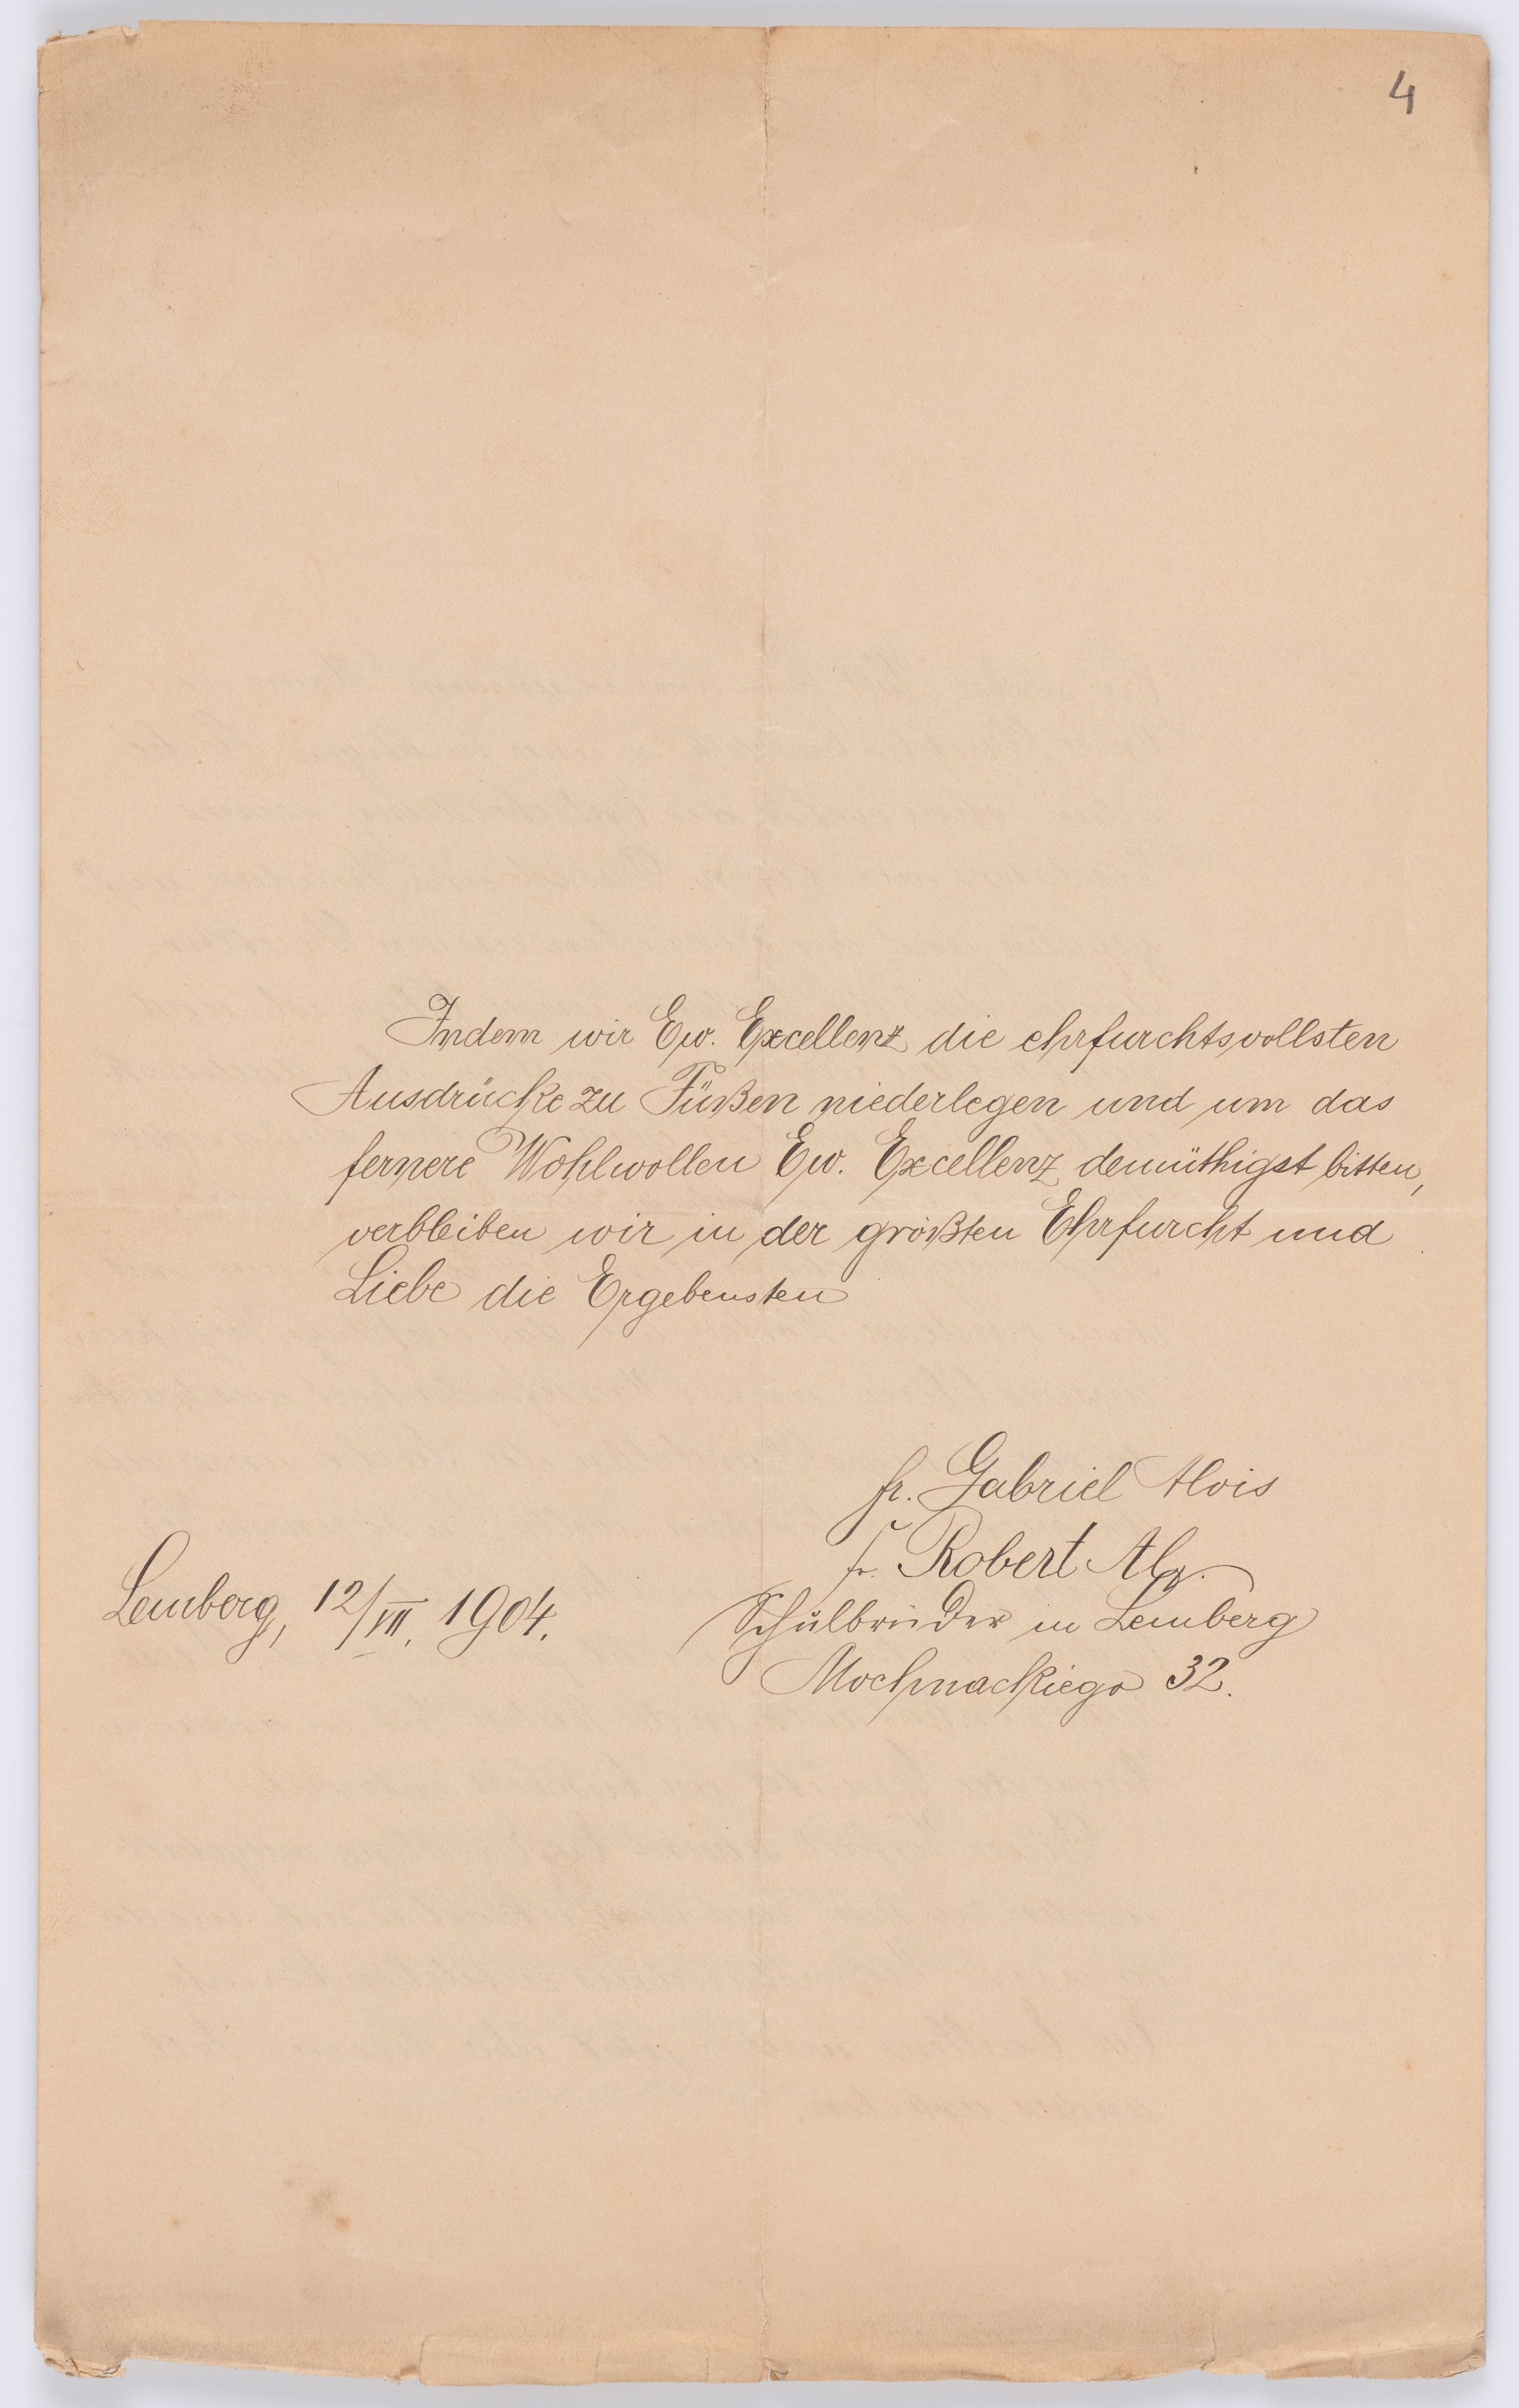 4
Indem wir Ew. Excellenz die ehrfurchtsvollsten
Ausdrücke zu Füßen niederlegen und um das
fernere Wohlwollen Ew. Excellenz demüthigst bitten,
verbleiben wir in der größten Ehrfurcht und
Liebe die Ergebensten
fr. Gabriel Alois
fr. Robert Al.
Lemberg, 12/VII. 1904.
Schulbrüder in Lemberg
Mochnackiego 32.